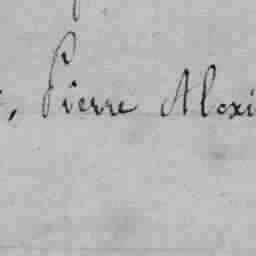 , Pierre Alexi